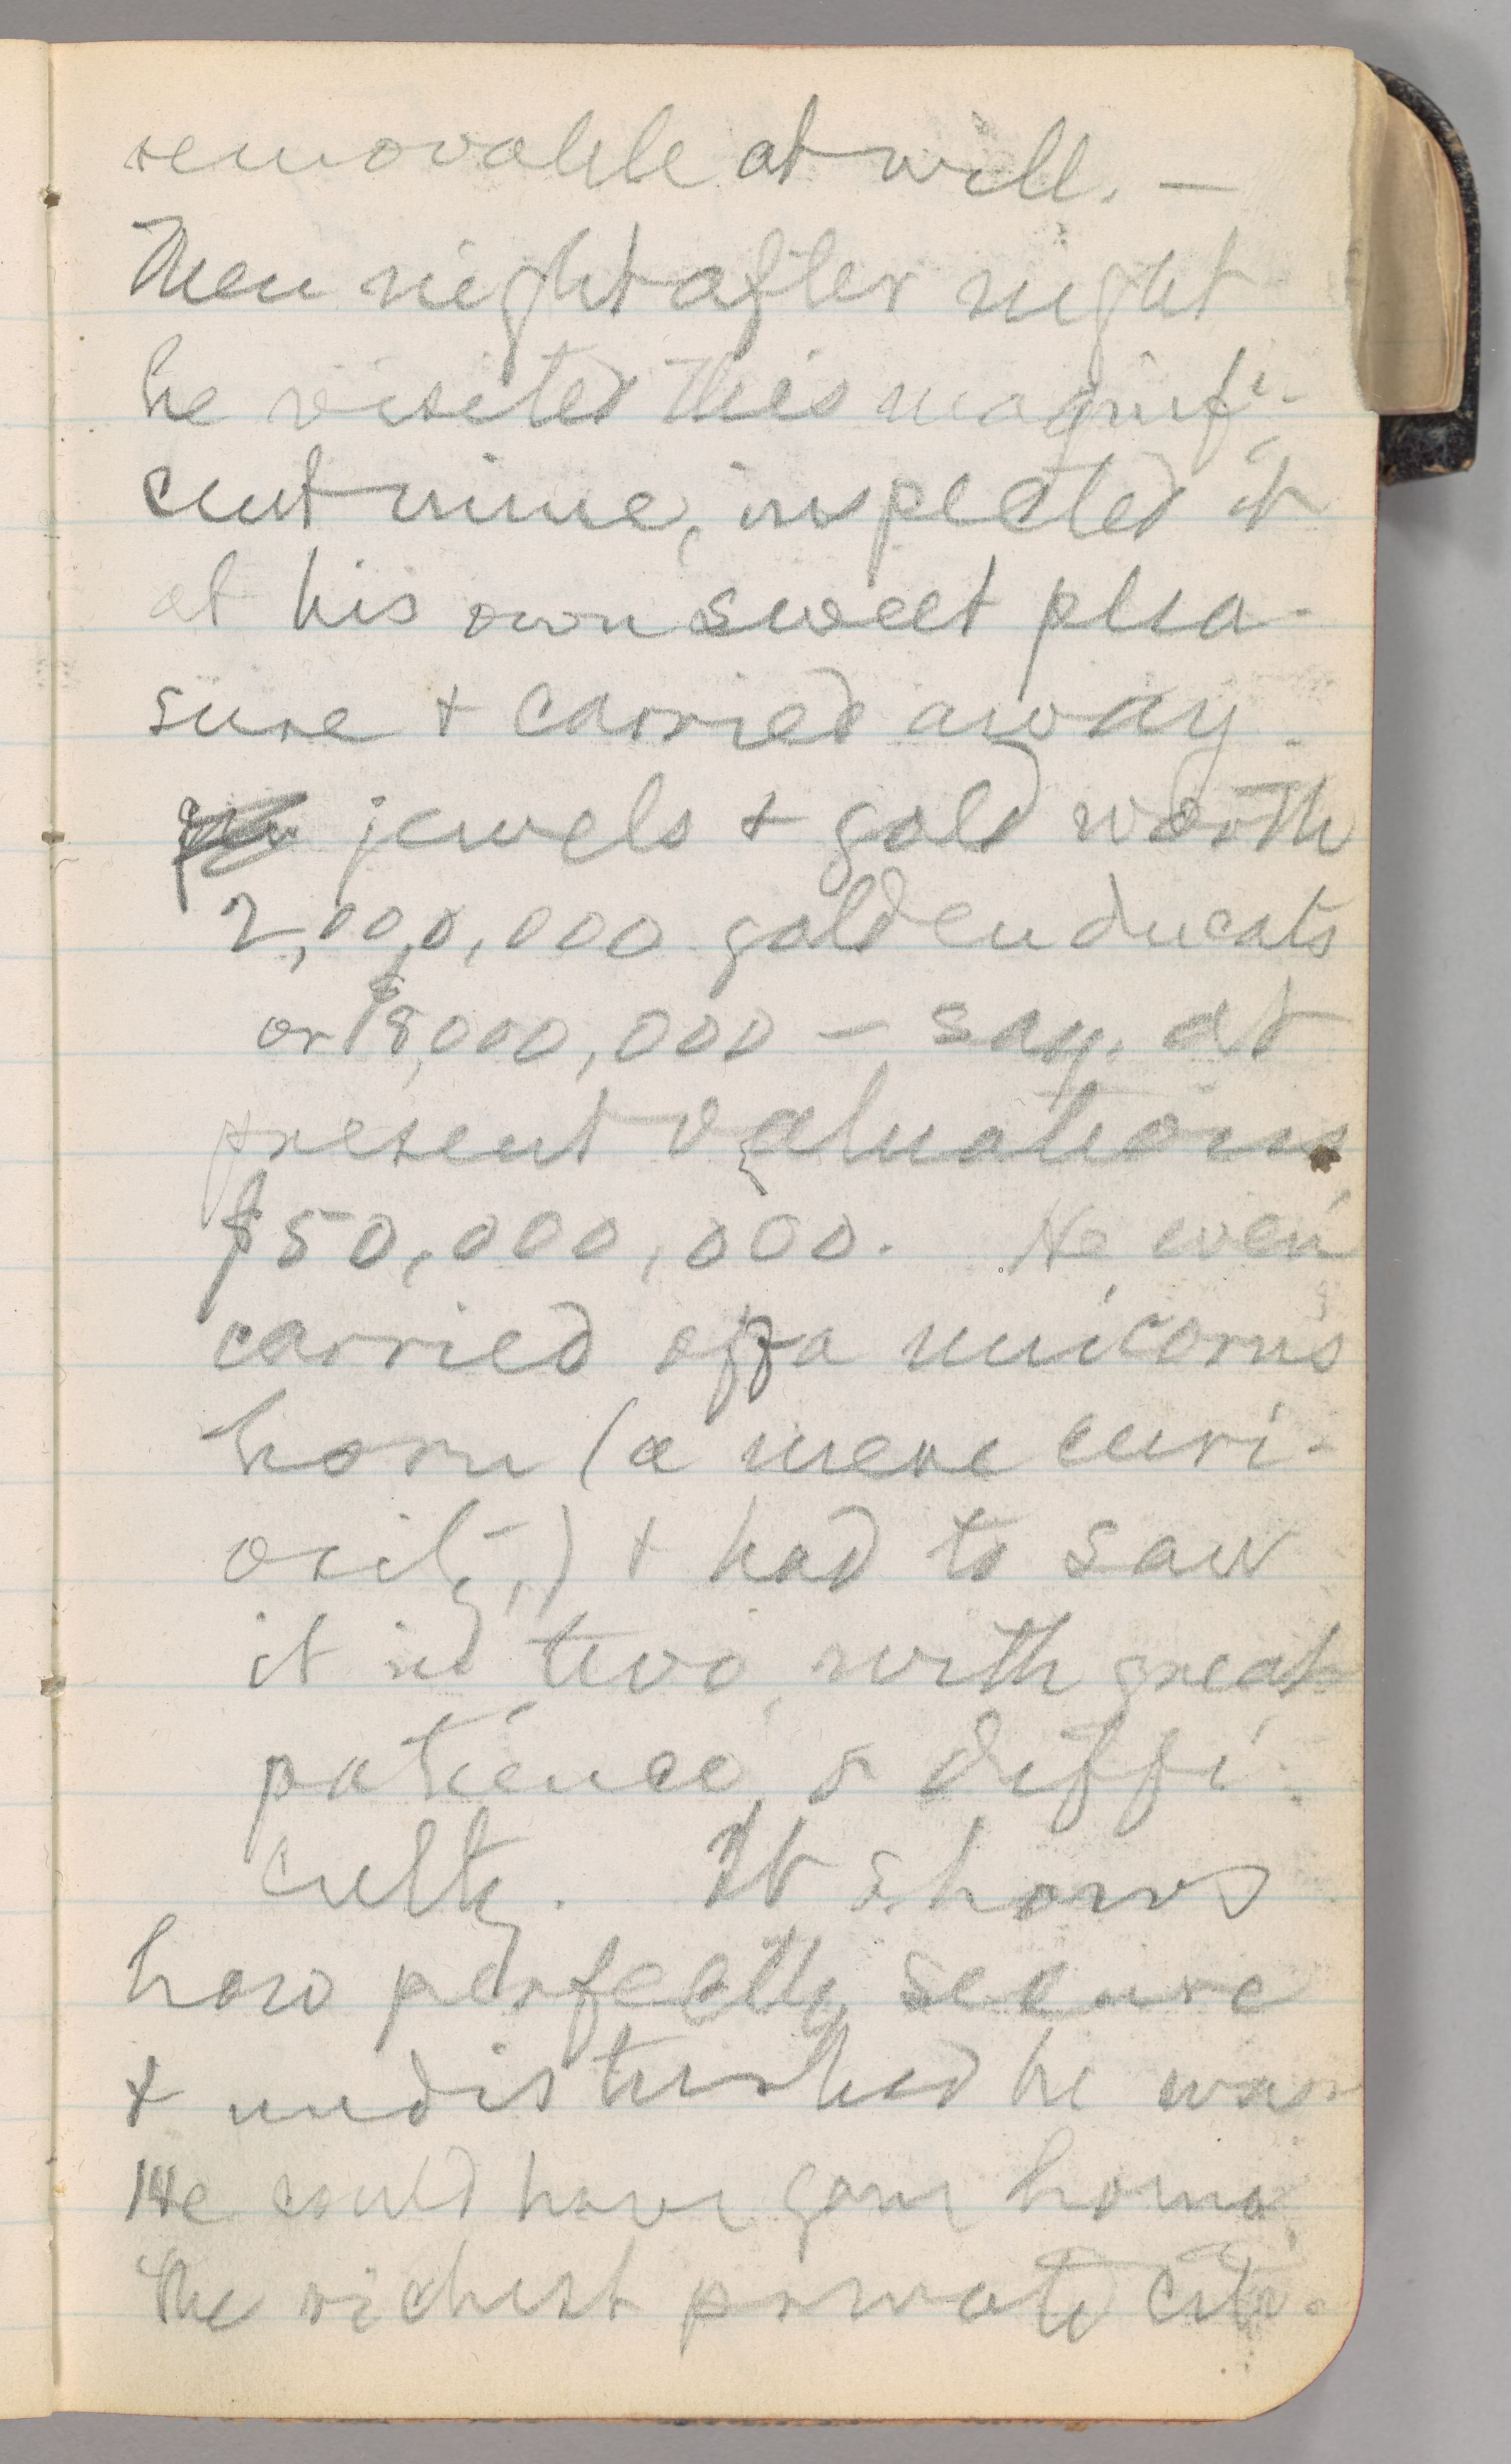 removable at will. —
Then night after night
he visited this magnifi-
cent mine, inspected it
at his own sweet plea-
sure & carried away
jewels & gold worth
2,000,000 golden ducats
or $8,000,000 — say, at
present valuations
$50,000,000. He even
carried off a unicorn's
horn (a mere curi-
osity,) & had to saw
it in two, with great
patience & diffi-
culty. It shows
how perfectly secure
& undisturbed he was
He could have gone home
the richest private citi-